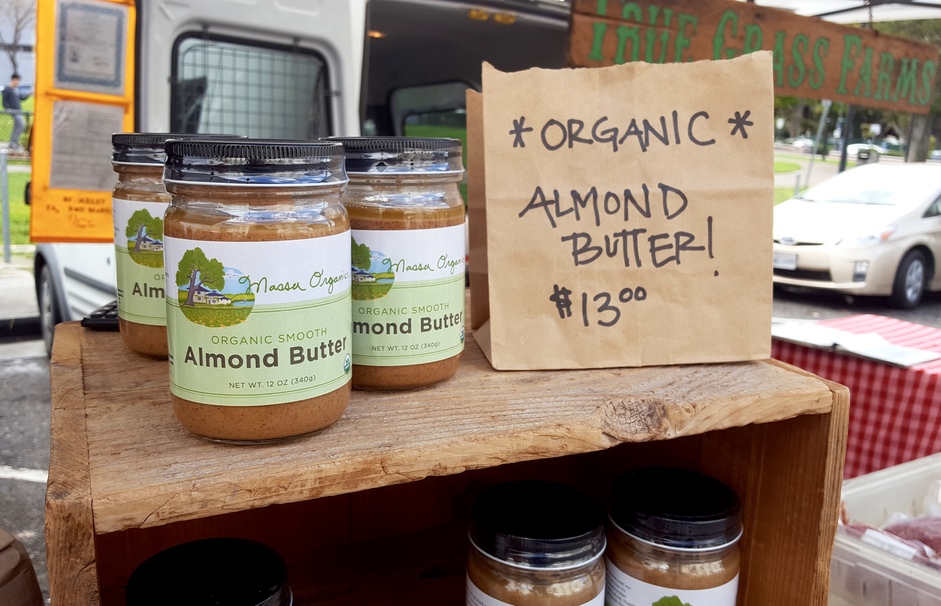 TRUE GRASS FARMS
* ORGANIC *
ALMOND
BUTTER!
$13.00
Massa Organics
ORGANIC SMOOTH
Almond Butter
NET WT. 12 OZ (340g)
Massa Organics
ORGANIC SMOOTH
Almond Butter
NET WT. 12 OZ (340g)